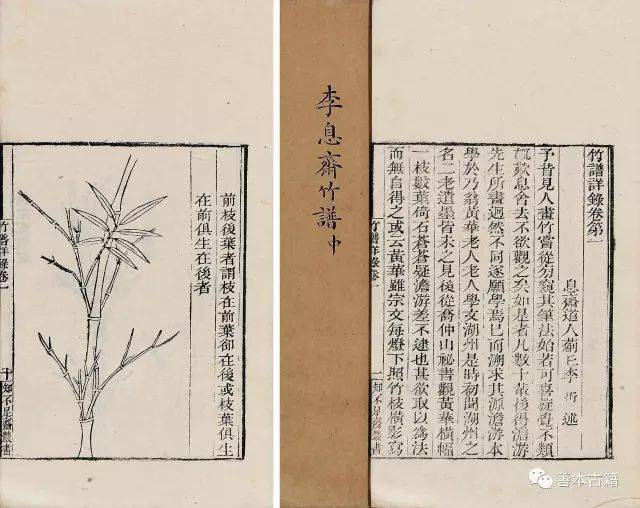 竹譜詳錄卷第一
息齋道人薊丘李衎述
予昔見人畫竹嘗從旁窺其筆法始若可喜旋覺不類
輒歎息舍去不欲觀之矣如是者凡數十輩後得澹游
先生所畫迥然不同遂願學焉已而溯求其源澹游本
學於乃翁黃華老人老人學文湖州是時初聞湖州之
名二老遺墨皆未之見後從喬仲山祕書觀黃華橫幅
一枝數葉倚石蒼蒼疑澹游差不逮也甚欲取以爲法
而無自得之或云黃華雖宗文每燈下照竹枝橫影寫
竹譜詳錄卷一
一 知不足齋叢書
李息齋竹譜中
前枝後葉者謂枝在前葉卻在後或枝葉俱生
在前俱生在後者
竹譜詳錄卷一
十 知不足齋叢書
善本古籍